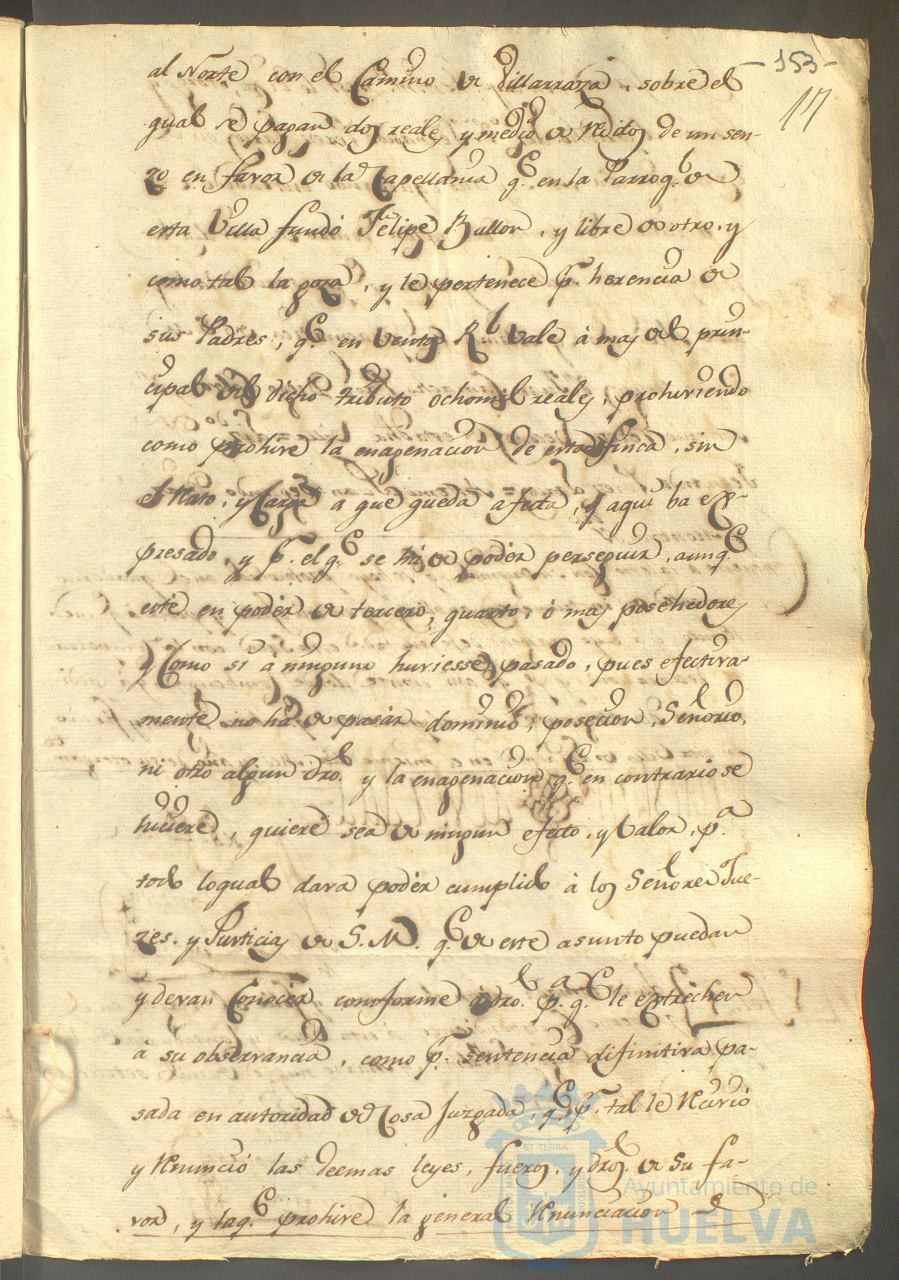 -153-
17
al Norte con el Camino de Villarraza, sobre el
qual se pagan dos reales y medio de Rédito de un sen-
zo en favor de la Capellania q.e en la Parroq.l de
esta Villa fundó Felipe Bullon, y libre de otro, y
como tal la goza, y le pertenece p.r herencia de
sus Padres, q.e en Venta R.l vale à mas del prin-
cipal del dicho tributo ochomil reales, prohiviendo
como prohive la enagenacion de esta finca, sin
el Nato, y Carga a que queda afecta, y aqui ba ex-
presado, y p.r el q.e se ha de poder perseguir, aunq.e
esté en poder de tercero, quarto, ó mas posehedores
y Como si à ninguno huviesse pasado, pues efectiva-
mente no ha de pasar dominio, posecion, Señorio,
ni otro algun dro. y la enagenacion q.e en contrario se
hiciere, quiere sea de ningun efecto, y Valor, p.a
todo loqual dara poder cumplido à los Señores Jue-
zes, y Justicias de S.M. q.e de este asunto puedan
y devan Conocer conoforme à dro. p.a q.e le extrechen
à su observancia, como p.r sentencia difinitiva pa-
sada en autoridad de Cosa Juzgada, q.e p.r tal le Recivio
y Renunció las deemas leyes, fueros, y dros. de su fa-
vor, y laq.e prohive la general Renunciacion de
ET TERRA
Ayuntamiento de
HUELVA